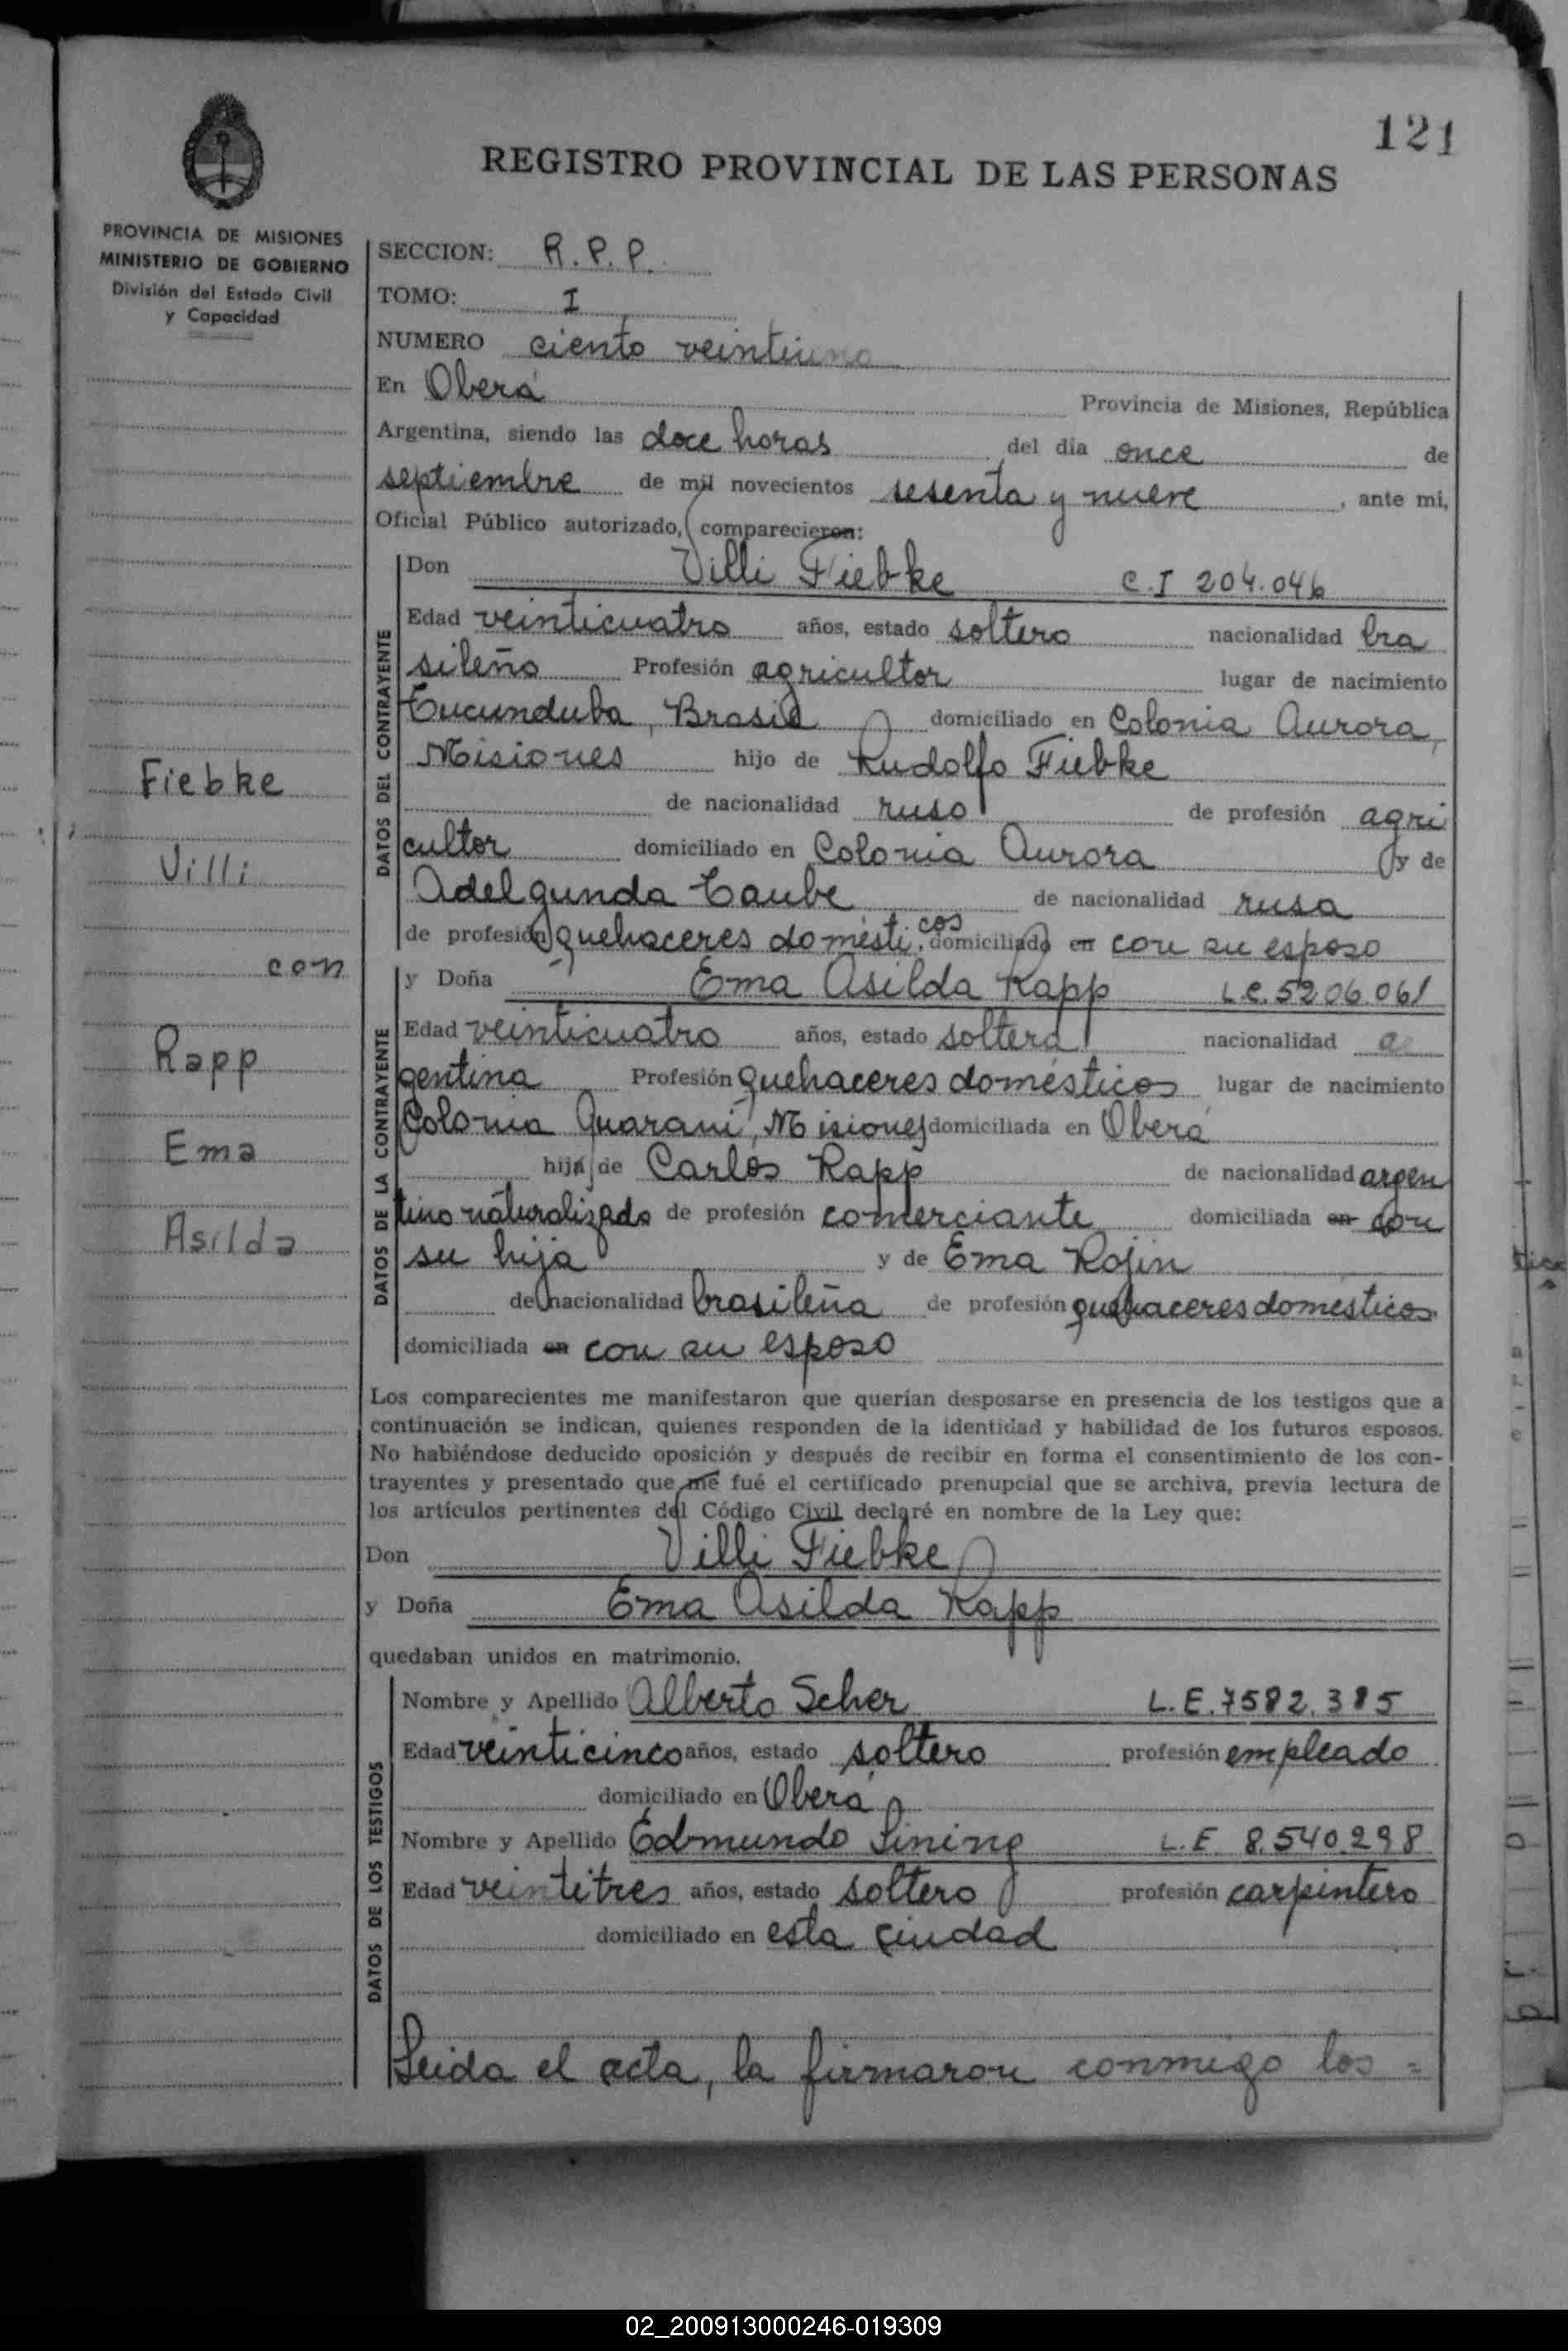 121
REGISTRO PROVINCIAL DE LAS PERSONAS
PROVINCIA DE MISIONES
MINISTERIO DE GOBIERNO
División del Estado Civil
y Capacidad
Fiebke
Villi
con
Rapp
Ema
Asilda
SECCION: R.P.P.
TOMO: I
NUMERO ciento veintiuno
En Oberá Provincia de Misiones, República
Argentina, siendo las doce horas del día once de
septiembre de mil novecientos sesenta y nueve, ante mi,
Oficial Público autorizado, comparecieron:
DATOS DEL CONTRAYENTE
Don Villi Fiebke C.I 204.046
Edad veinticuatro años, estado soltero nacionalidad bra
sileño Profesión agricultor lugar de nacimiento
Tucunduba, Brasil domiciliado en Colonia Aurora,
Misiones hijo de Rudolfo Fiebke
de nacionalidad ruso de profesión agri
cultor domiciliado en Colonia Aurora y de
Adelgunda Taube de nacionalidad rusa
de profesión quehaceres domésticos, domiciliado en con su esposo
DATOS DE LA CONTRAYENTE
y Doña Ema Asilda Rapp L.C. 5206.061
Edad veinticuatro años, estado soltera nacionalidad a
gentina Profesión quehaceres domésticos lugar de nacimiento
Colonia Guaraní, Misiones domiciliada en Oberá
hija de Carlos Rapp de nacionalidad argen
tino naturalizado de profesión comerciante domiciliada en con
su hija y de Ema Rojin
de nacionalidad brasileña de profesión quehaceres domesticos
domiciliada en con su esposo
Los comparecientes me manifestaron que querían desposarse en presencia de los testigos que a
continuación se indican, quienes responden de la identidad y habilidad de los futuros esposos.
No habiéndose deducido oposición y después de recibir en forma el consentimiento de los con-
trayentes y presentado que me fué el certificado prenupcial que se archiva, previa lectura de
los artículos pertinentes del Código Civil declaré en nombre de la Ley que:
Don Villi Fiebke
y Doña Ema Asilda Rapp
quedaban unidos en matrimonio.
DATOS DE LOS TESTIGOS
Nombre y Apellido Alberto Scher L.E. 7582.385
Edad veinticinco años, estado soltero profesión empleado
domiciliado en Oberá
Nombre y Apellido Edmundo Sining L.E. 8.540.298
Edad veintitres años, estado soltero profesión carpintero
domiciliado en esta ciudad
Leida el acta, la firmaron conmigo los =
02_200913000246-019309